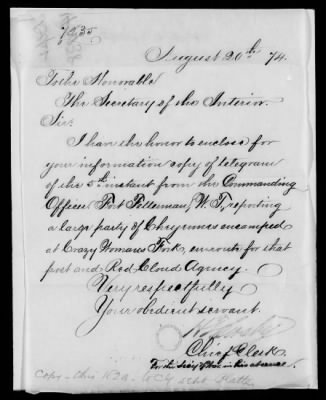 7235
August 20th 74.
To the Honorable
The Secretary of the Interior.
Sir:
I have the honor to enclose for
your information copy of telegram
of the 5th instant from the Commanding
Officer Fort Fetterman, W. T., reporting
a large party of Cheyennes encamped
at Crazy Womans Fork, enroute for that
post and Red Cloud Agency.
Very respectfully
Your obedient servant.
Chief Clerk.
For the Secy of War in his absence.
Copy